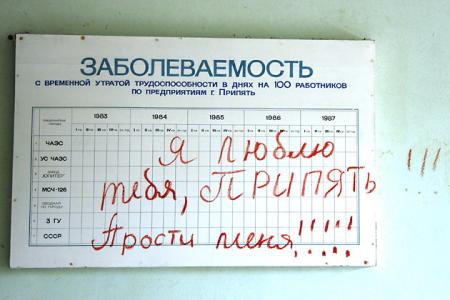 ЗАБОЛЕВАЕМОСТЬ
С ВРЕМЕННОЙ УТРАТОЙ ТРУДОСПОСОБНОСТИ В ДНЯХ НА 100 РАБОТНИКОВ
ПО ПРЕДПРИЯТИЯМ Г. ПРИПЯТЬ
1983 1984 1985 1986 1987
ЧАЭС
УС ЧАЭС
ЗАВОД ЮПИТЕР
МСЧ-126
3 ГУ
СССР
Я люблю
тебя, ПРИПЯТЬ !!!
Прости меня!!!!!